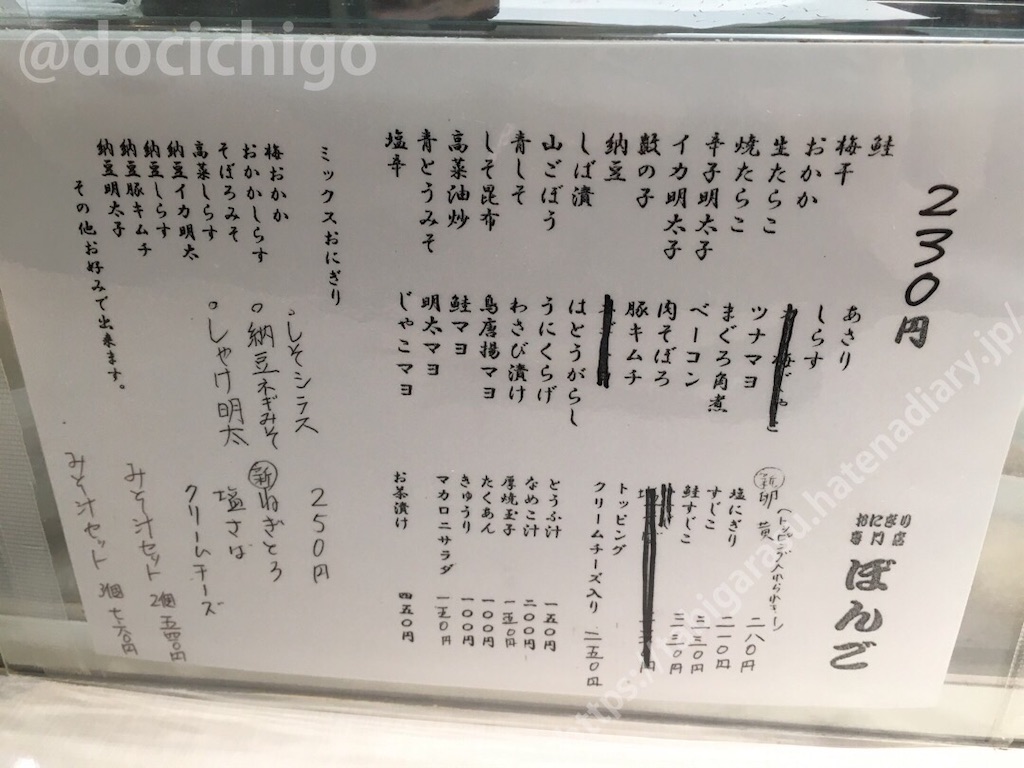 @docichigo
おにぎり
専門店
ぼんご
230円
鮭
梅干
おかか
生たらこ
焼たらこ
辛子明太子
イカ明太子
数の子
納豆
しば漬
山ごぼう
青しそ
しそ昆布
高菜油炒
青とうみそ
塩辛
あさり
しらす
ツナマヨ
まぐろ角煮
ベーコン
肉そぼろ
豚キムチ
はとうがらし
うにくらげ
わさび漬け
鳥唐揚マヨ
鮭マヨ
明太マヨ
じゃこマヨ
新卵黄 二八〇円
塩にぎり 二一〇円
すじこ 三三〇円
鮭すじこ 三三〇円
トッピング
クリームチーズ入り 二五〇円
とうふ汁 一五〇円
なめこ汁 二〇〇円
厚焼玉子 一五〇円
たくあん 一〇〇円
きゅうり 一〇〇円
マカロニサラダ 一五〇円
お茶漬け 四五〇円
ミックスおにぎり
250円
梅おかか
おかかしらす
そぼろみそ
高菜しらす
納豆イカ明太
納豆しらす
納豆豚キムチ
納豆明太子
その他お好みで出来ます。
。しそシラス
。納豆ネギみそ
。しゃけ明太
新ねぎとろ
塩さば
クリームチーズ
みそ汁セット 2個 五四〇円
みそ汁セット 3個
https://onigarasu.hatenadiary.jp/